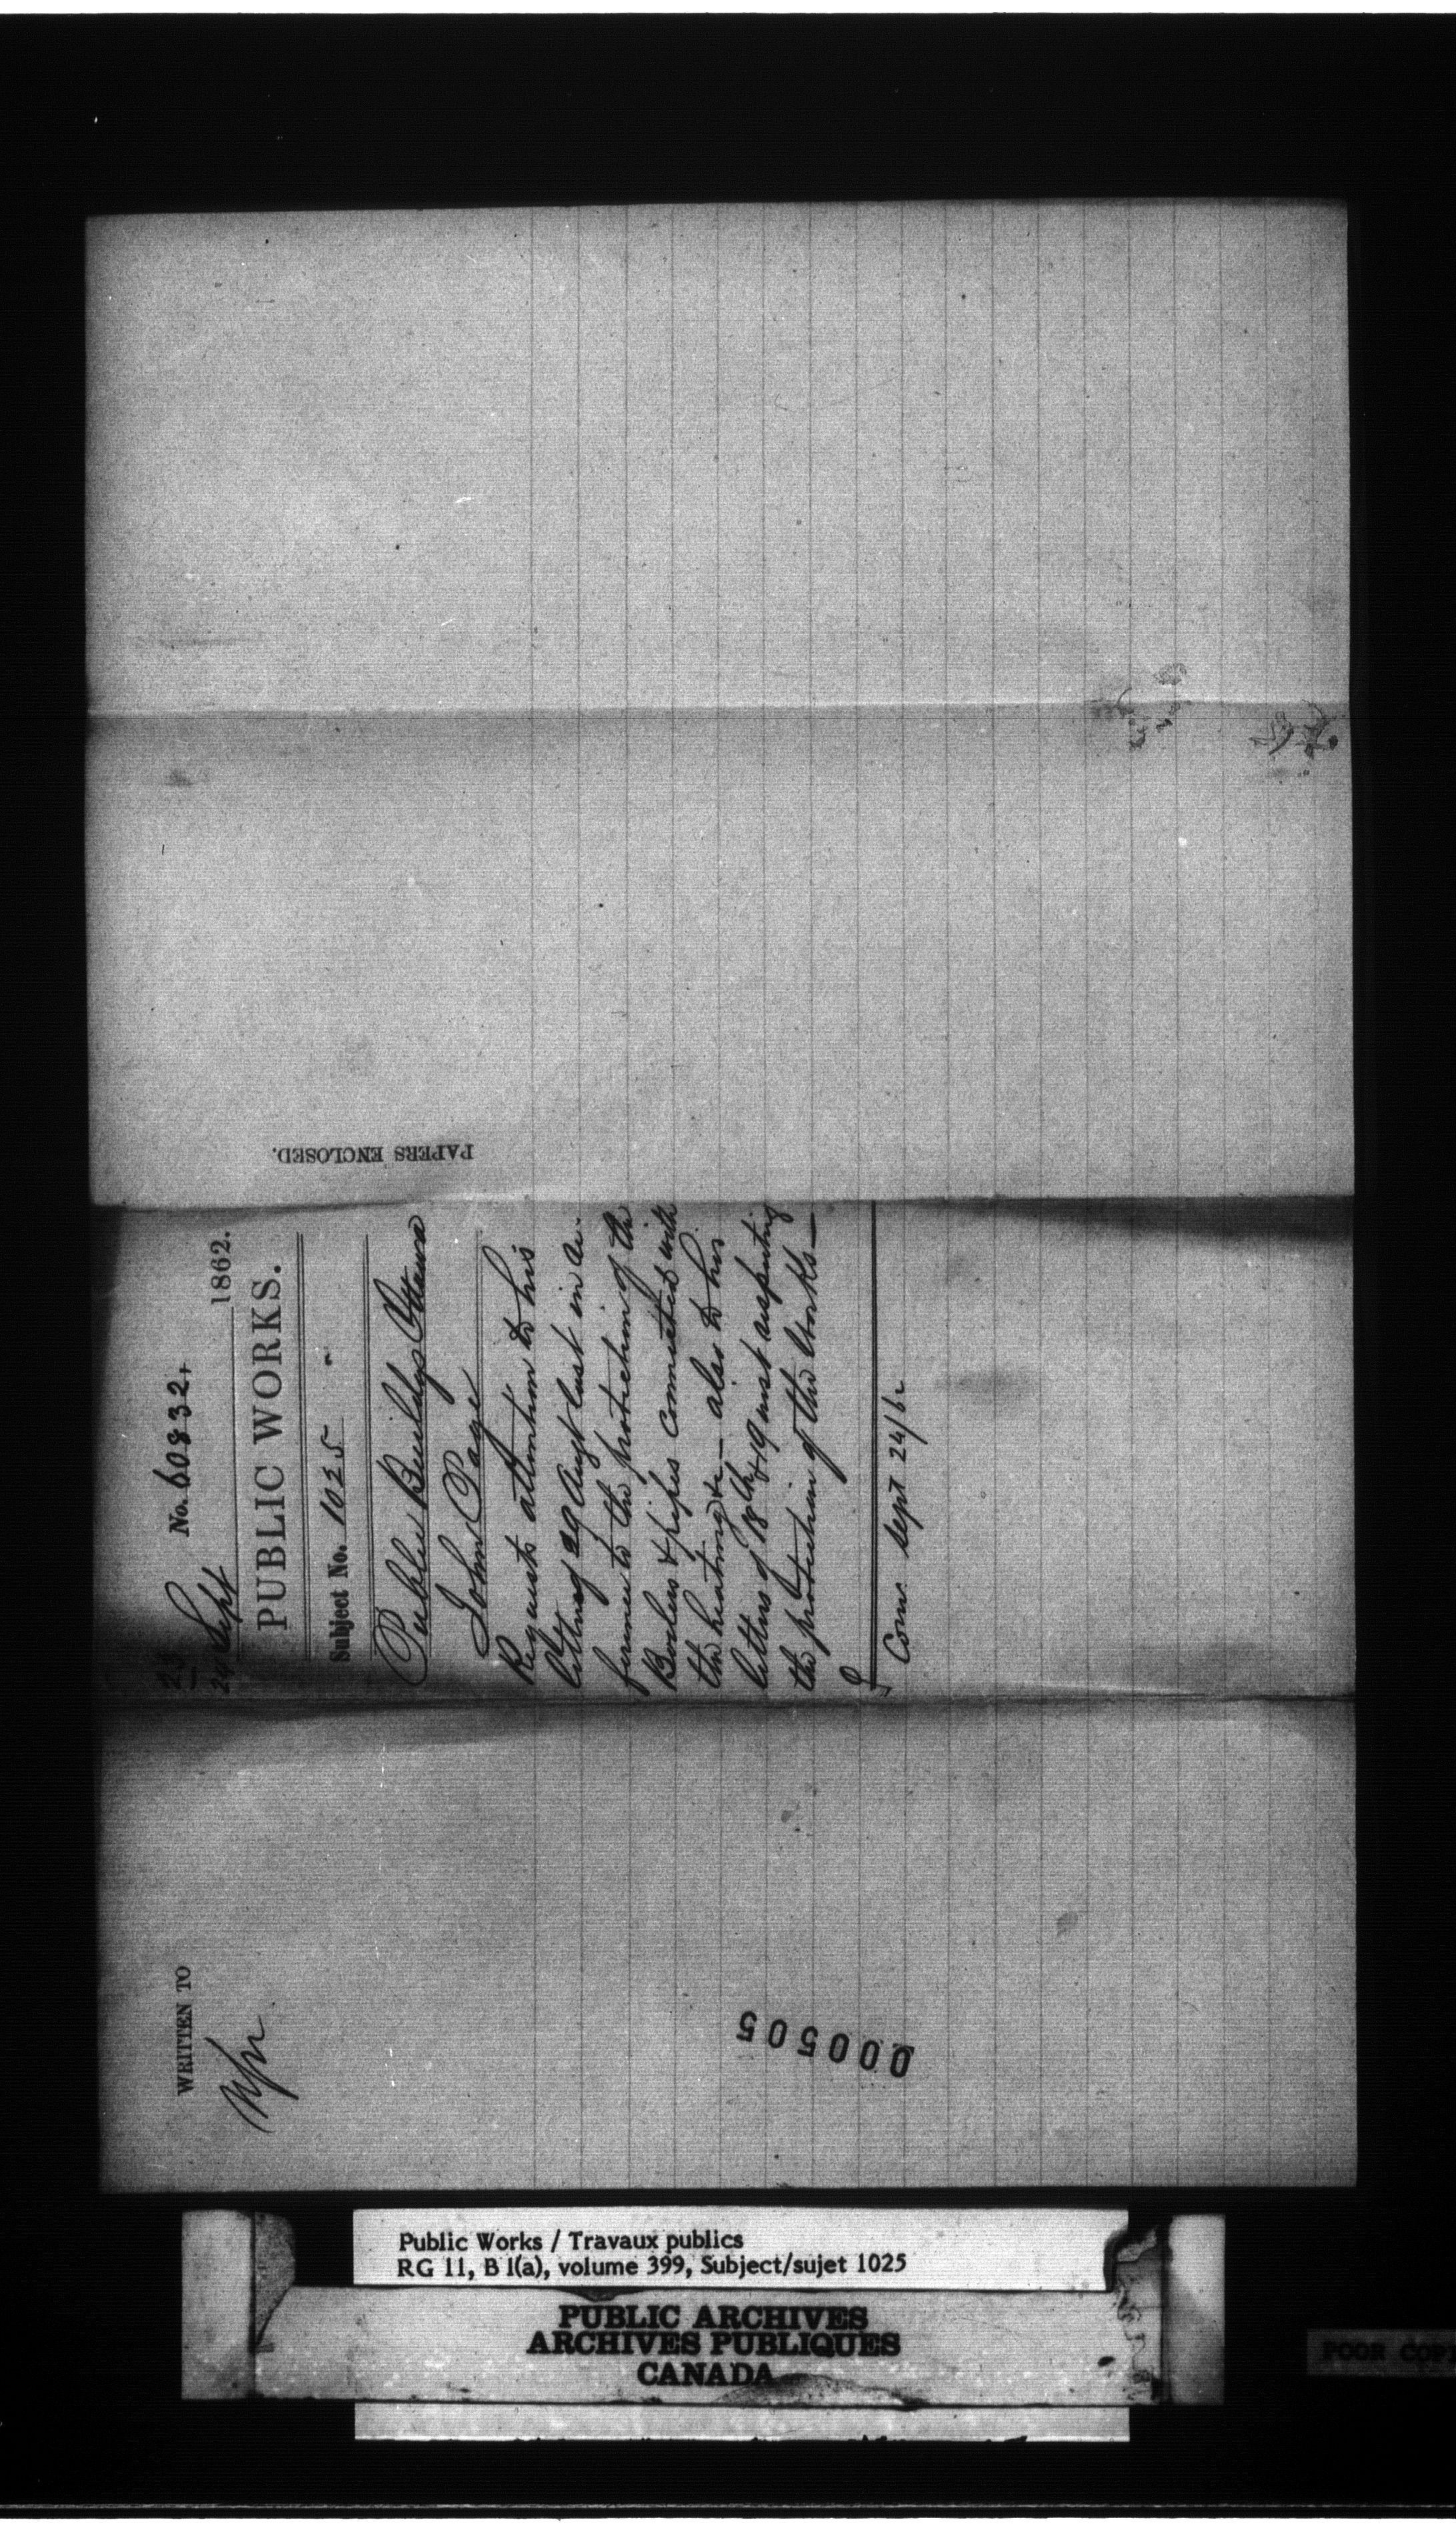 PAPERS ENCLOSED.
23 No. 60832.
24 Sept 1862.
PUBLIC WORKS.
Subject No. 1025
Public Buildgs Ottawa
John Page
Requests attention to his
letter of 29 Augt last in re-
ference to the protection of the
Boilers & pipes connected with
the heating &c — also to his
letters of 18th & 19 inst respecting
the protection of the Works —
Com. Sept 24/62
WRITTEN TO
000505
Public Works / Travaux publics
RG 11, B 1(a), volume 399, Subject/sujet 1025
PUBLIC ARCHIVES
ARCHIVES PUBLIQUES
CANADA
POOR COPY